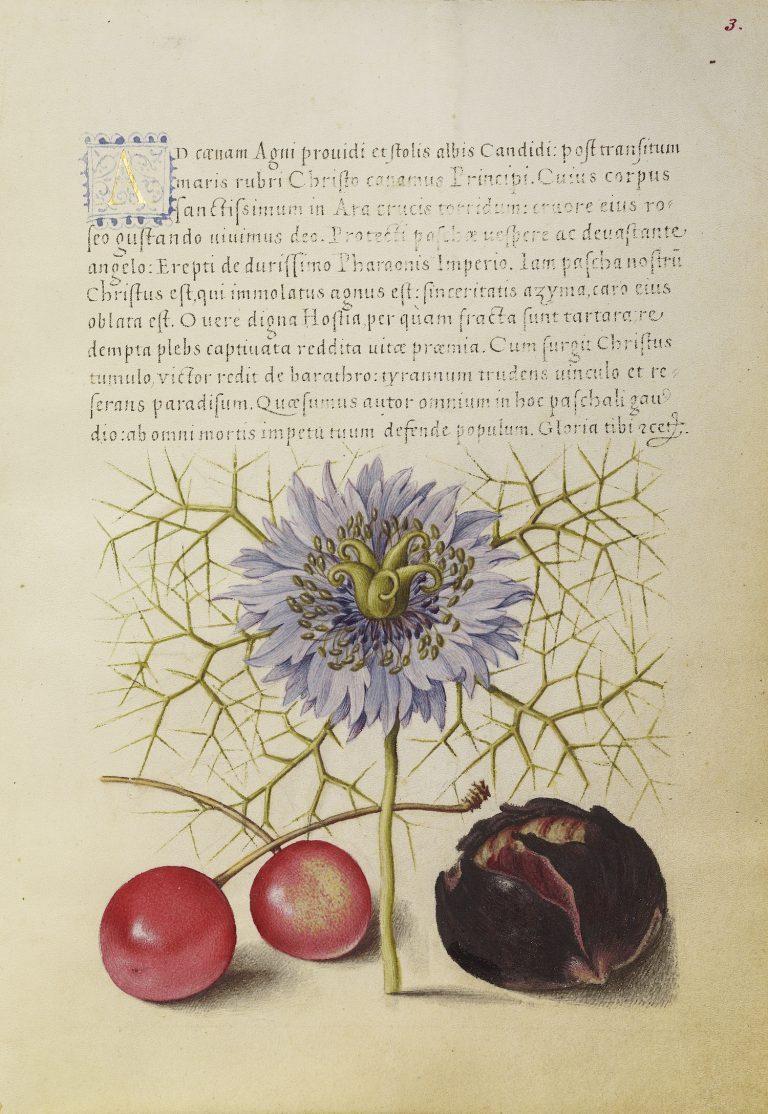 3.
AD cœnam Agni prouidi et stolis albis Candidi: post transitum
maris rubri Christo canamus Principi. Cuius corpus
sanctissimum in Ara crucis torridum: cruore eius ro-
seo gustando uiuimus deo. Protecti paschæ uespere ac deuastante
angelo: Erepti de durissimo Pharaonis Imperio. Iam pascha nostrū
Christus est, qui immolatus agnus est: sinceritatis azyma, caro eius
oblata est. O uere digna Hostia, per quam fracta sunt tartara, re
dempta plebs captiuata reddita uitæ præmia. Cum surgit Christus
tumulo, victor redit de barathro: tyrannum trudens uinculo et re-
serans paradisum. Quæsumus autor omnium in hoc paschali gau
dio: ab omni mortis impetu tuum defende populum. Gloria tibi